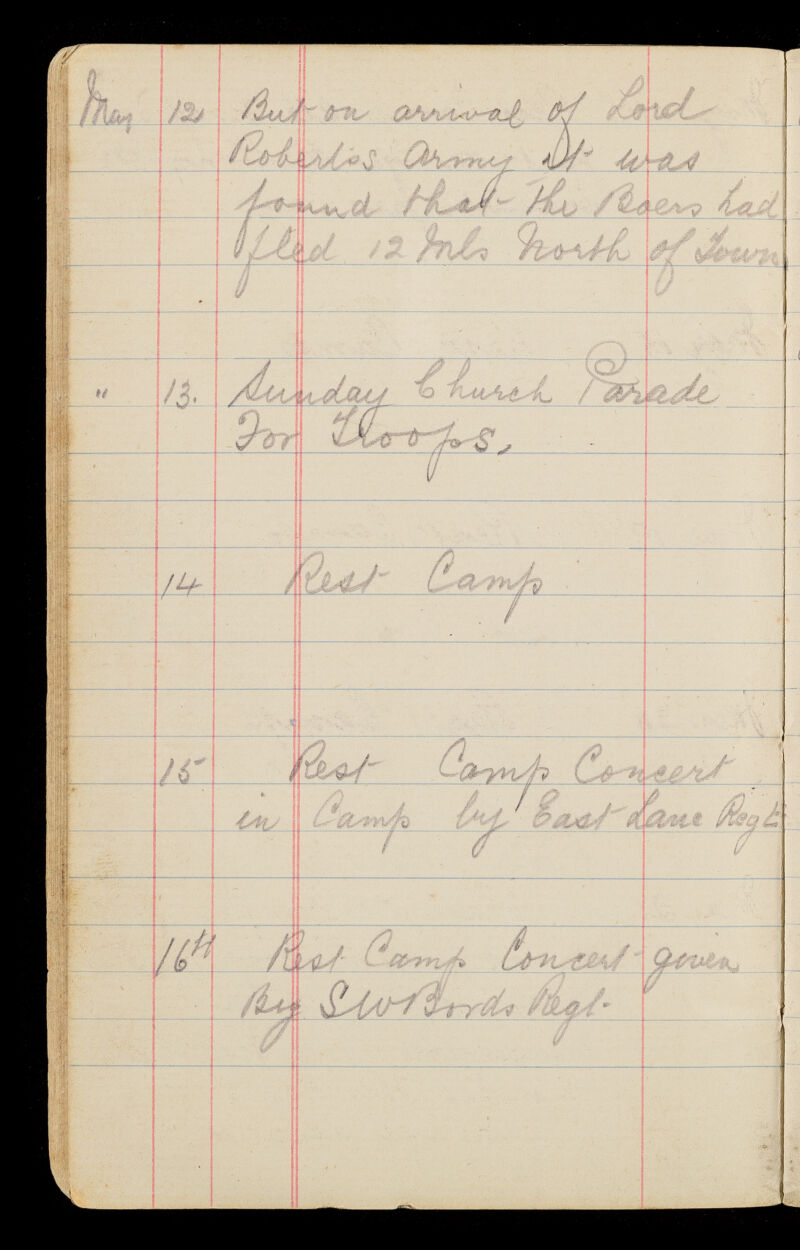 May 12 But on arrival of Lord
Robertss Army it was
found that the Boers had
fled 12 Mls North of Town
" 13. Sunday Church Parade
For Troops.
14 Rest Camp
15 Rest Camp Concert
in Camp by East Lanc Regt
16th Rest Camp Concert given
By S W Bords Regt